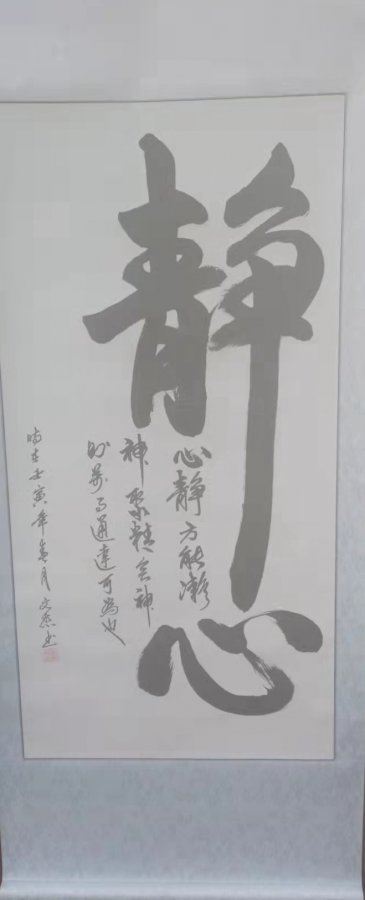 静心
心静方能凝
神聚精会神
则万事通达可为也
时在壬寅年春月文杰书